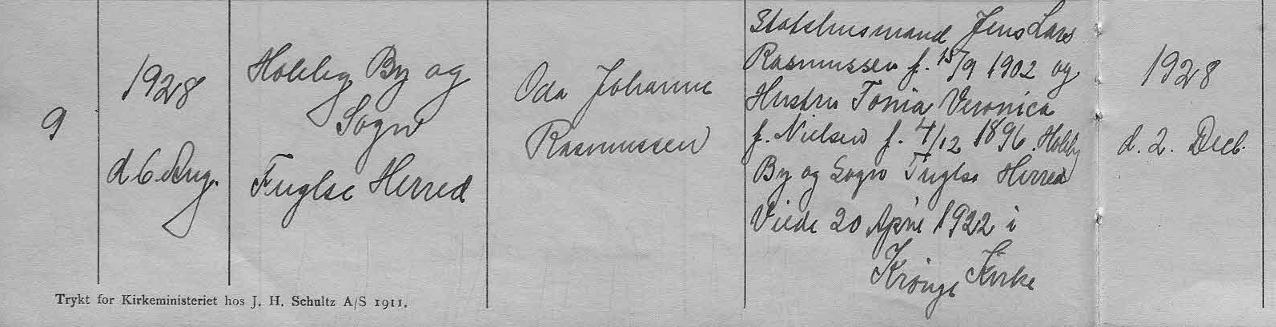 9
1928
d 6. Aug.
Holeby By og
Sogn
Fuglse Herred
Oda Johanne
Rasmussen
Statshusmand Jens Lars
Rasmussen f. 15/9 1902 og
Hustru Tonia Veronica
f. Nielsen f. 4/12 1896. Holeby
By og Sogn Fuglse Herred
Viede 20 April 1922 i
Krønge Kirke
1928
d. 2. Decb.
Trykt for Kirkeministeriet hos J. H. Schultz A/S 1911.